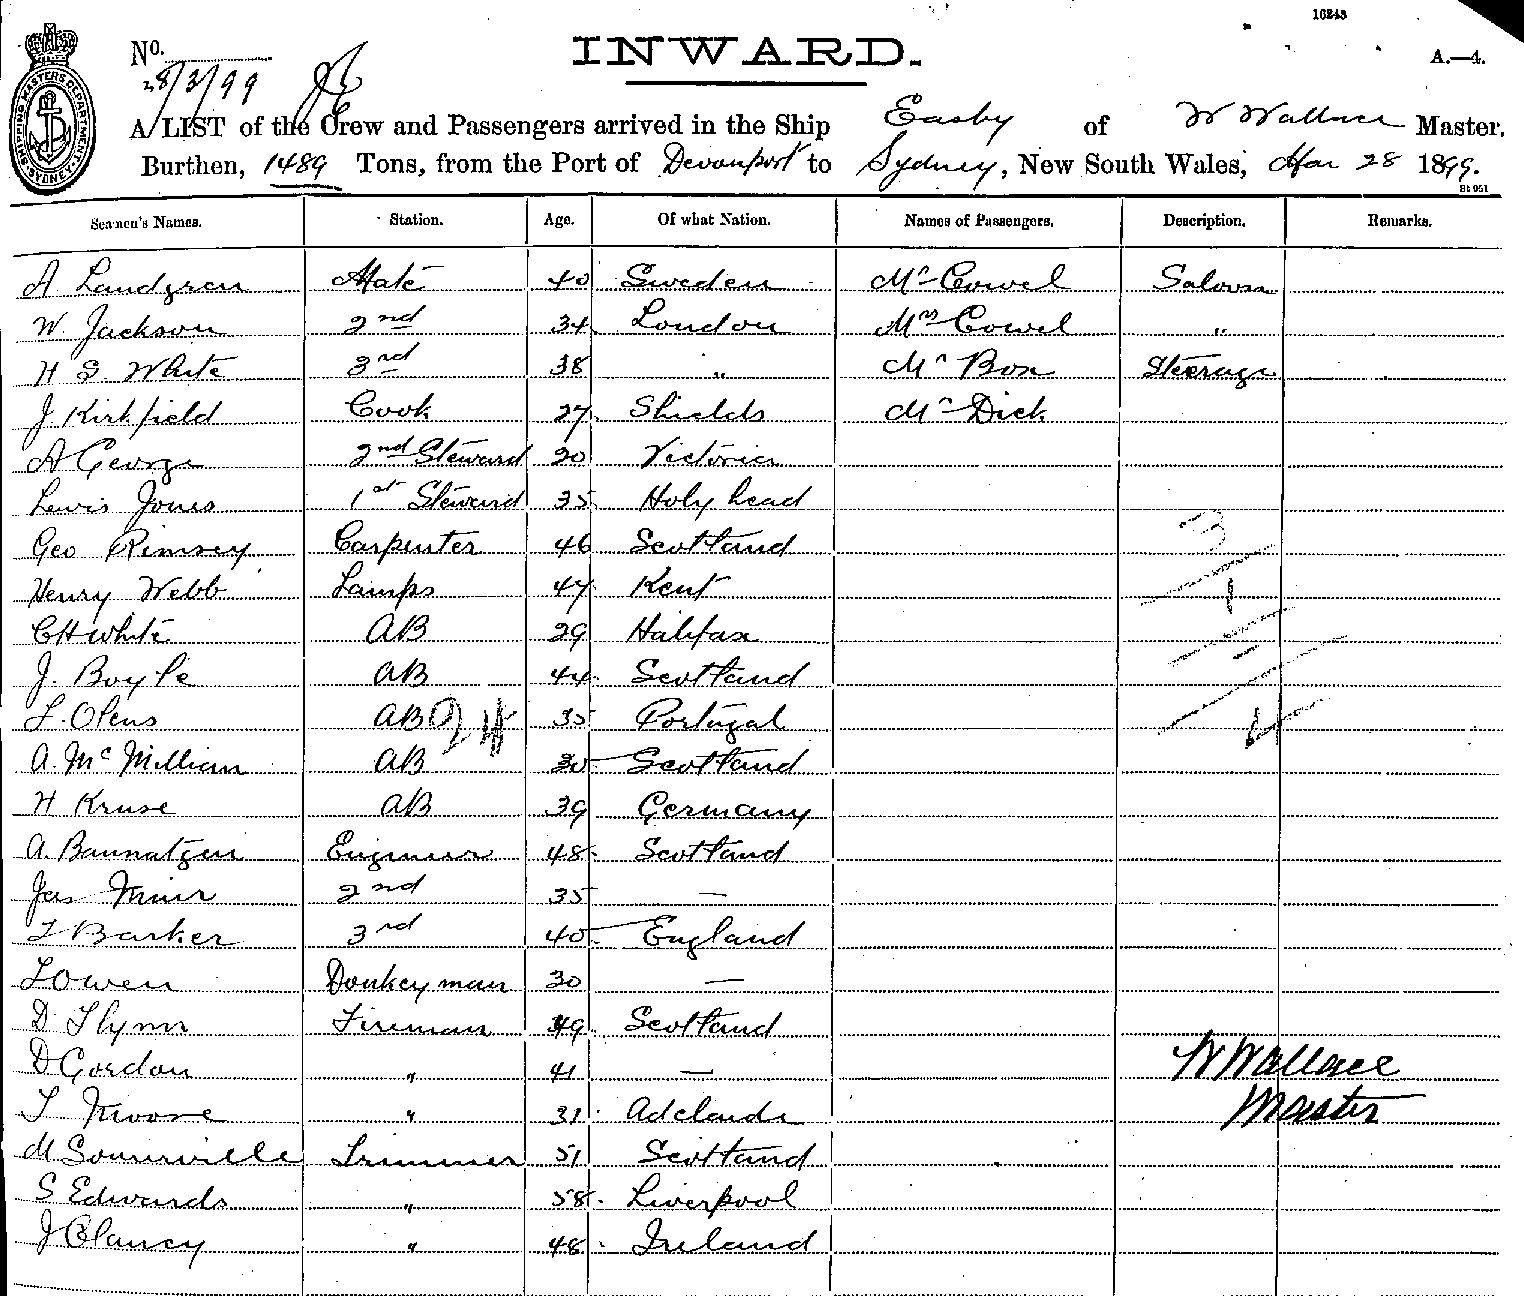 16243
No.
INWARD.
A.—4.
28/3/99
A LIST of the Crew and Passengers arrived in the Ship Easby of W Wallace Master,
Burthen, 1489 Tons, from the Port of Devonport to Sydney, New South Wales, Mar 28 1899.
SHIPPING MASTERS DEPARTMENT SYDNEY
Seamen's Names. Station. Age. Of what Nation. Names of Passengers. Description. Remarks.
A Landgren Mate 40 Sweden Mr Cowel Saloon
W. Jackson 2nd 34 London Mrs Cowel "
H S White 3rd 38 " Mr Box Steerage
J. Kirkfield Cook 27 Shields Mr Dick
A George 2nd Steward 20 Victoria
Lewis Jones 1st Steward 35 Holy head
Geo Rimsey Carpenter 46 Scotland
3
Henry Webb Lamps 47 Kent
1
C H White AB 29 Halifax
J. Boyle AB 44 Scotland
L. Olens AB 35 Portugal
24
4
A. McMillian AB 30 Scotland
H Kruse AB 39 Germany
A. Bannatgen Engineer 48 Scotland
Jas Muir 2nd 35 —
T Barker 3rd 40 England
L Owen Donkeyman 30 —
D. Flynn Fireman 49 Scotland
D Gordon " 41 —
W Wallace
T Moore " 31 Adelaide
Master
M Somerville Trimmer 51 Scotland
S Edwards " 58 Liverpool
J Clancy " 48 Ireland